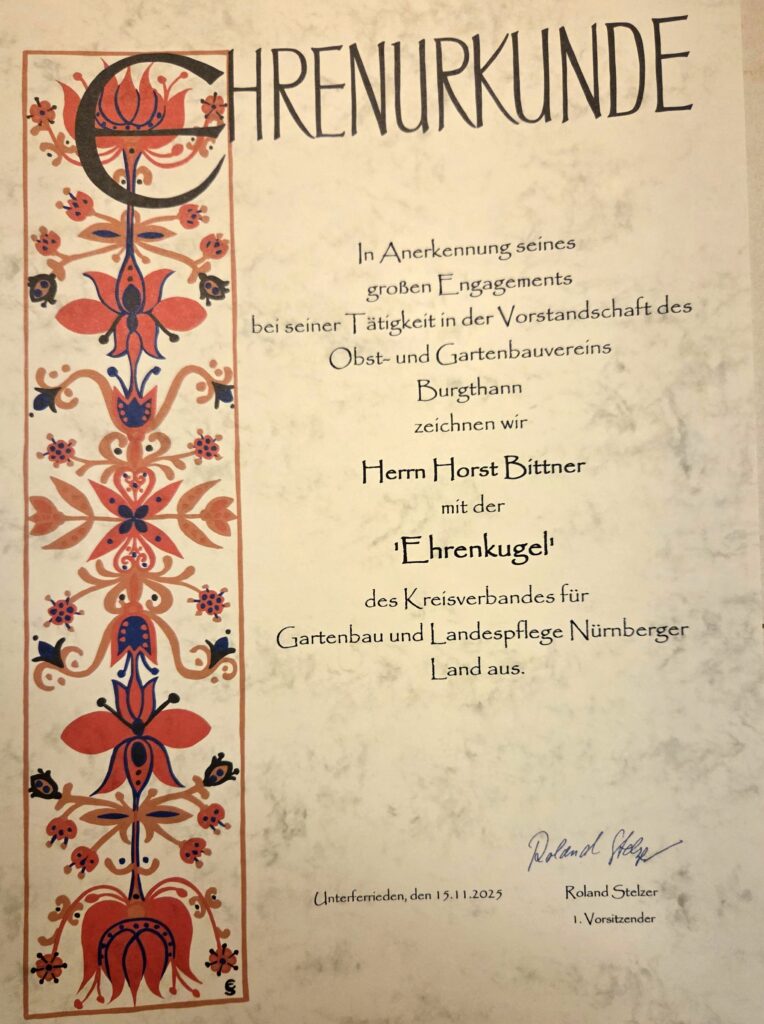 EHRENURKUNDE
In Anerkennung seines
großen Engagements
bei seiner Tätigkeit in der Vorstandschaft des
Obst- und Gartenbauvereins
Burgthann
zeichnen wir
Herrn Horst Bittner
mit der
'Ehrenkugel'
des Kreisverbandes für
Gartenbau und Landespflege Nürnberger
Land aus.
Roland Stelzer
Unterferrieden, den 15.11.2025
Roland Stelzer
1. Vorsitzender